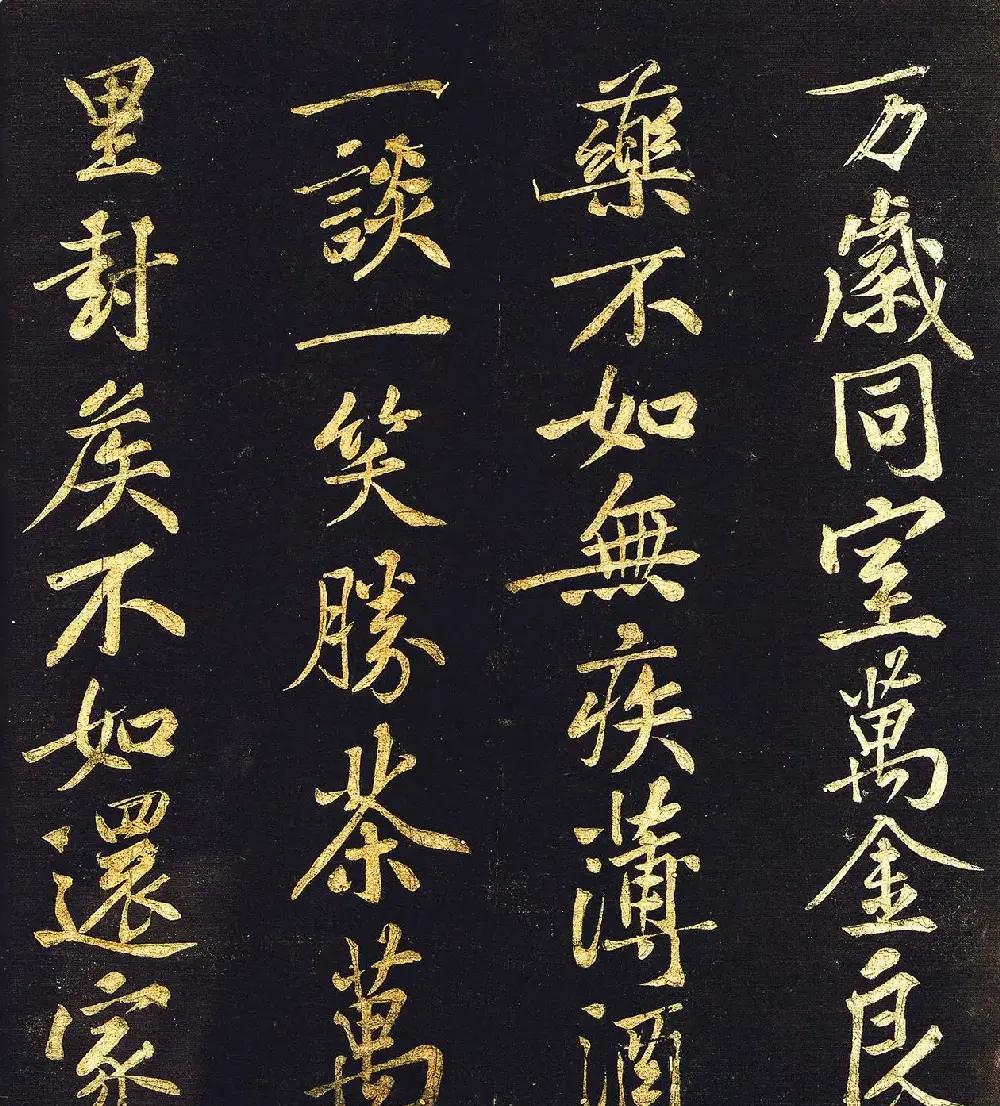 万歳同室萬金良
藥不如無疾薄酒
一談一笑勝茶萬
里封矦不如還家